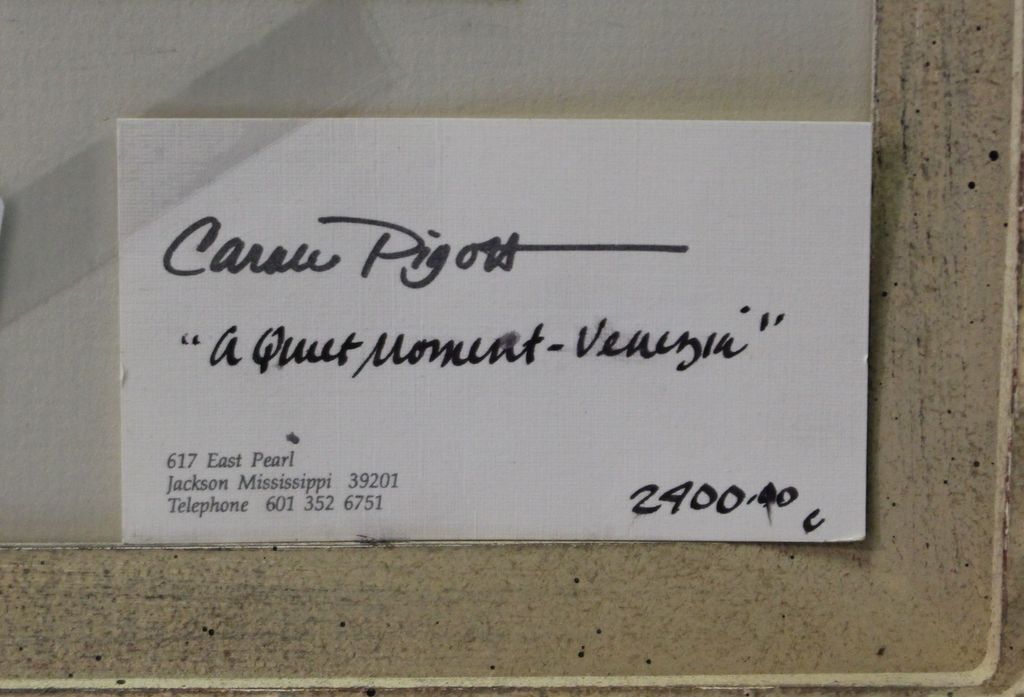 Carole Pigott
"A Quiet Moment - Venezia"
617 East Pearl
Jackson Mississippi 39201
Telephone 601 352 6751
2400.00